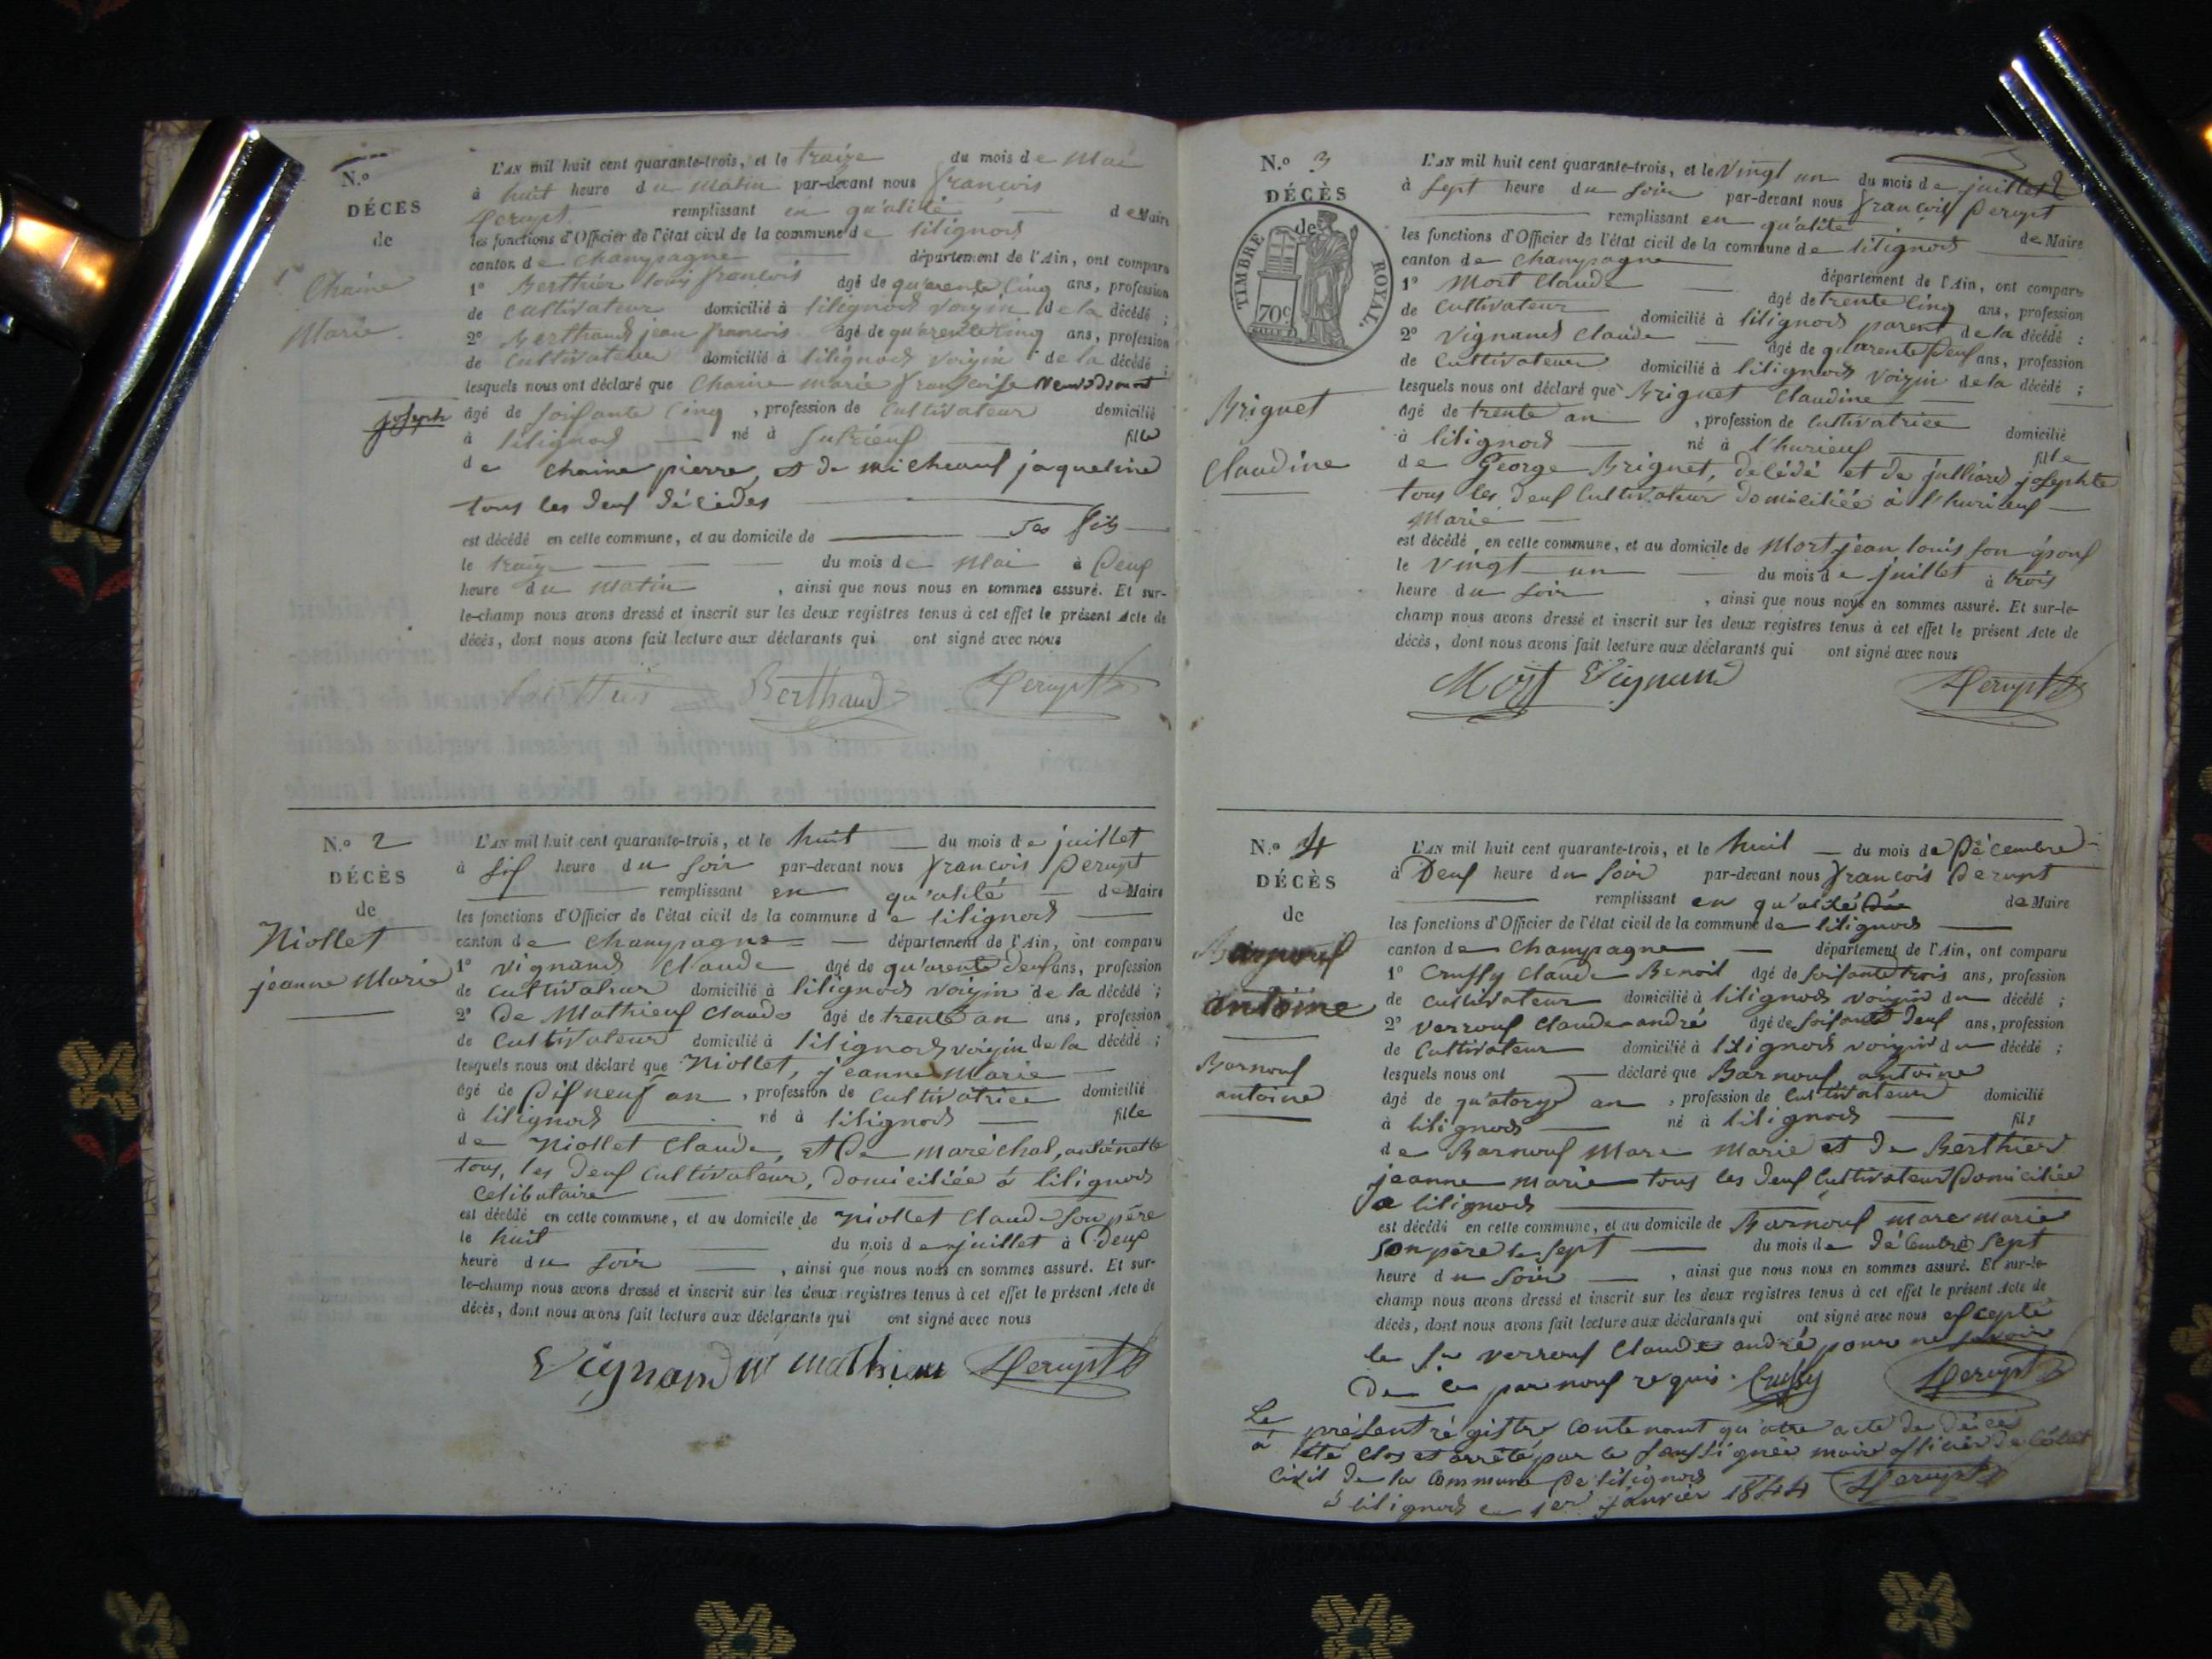 N.o
DÉCES
de
Chaine
Marie
joseph
L'AN mil huit cent quarante-trois, et le traize du mois de Mai
à huit heure du matin par-devant nous françois
Derupt remplissant en qu'alité de Maire
les fonctions d'Officier de l'état civil de la commune de lilignod
canton de champagne département de l'Ain, ont comparu
1o Berthier louis françois âgé de qu'arente cinq ans, profession
de cultivateur domicilié à lilignod voizin de la décédé ;
2o Berthaud jean francois âgé de qu'arente cinq ans, profession
de cultivateur domicilié à lilignod voizin de la décédé ;
lesquels nous ont déclaré que Chaine marie françoise
âgé de soisante cinq , profession de cultivateur domicilié
à lilignod né à Sutrieux fille
de chaine pierre, et de micheaud jaqueline
tous les deux décédes
est décédé en cette commune, et au domicile de ses fils
le traize du mois de Mai à Deux
heure du matin , ainsi que nous nous en sommes assuré. Et sur-
le-champ nous avons dressé et inscrit sur les deux registres tenus à cet effet le présent Acte de
décès, dont nous avons fait lecture aux déclarants qui ont signé avec nous
Berthaud Derupt
N.o 2
DÉCÈS
de
Niollet
jeanne Marie
L'AN mil huit cent quarante-trois, et le huit du mois de juillet
à six heure du soir par-devant nous françois Derupt
remplissant en qu'alité de Maire
les fonctions d'Officier de l'état civil de la commune de lilignod
canton de champagne département de l'Ain, ont comparu
1o vignand Claude âgé de qu'arente deux ans, profession
de cultivateur domicilié à lilignod voizin de la décédé ;
2o De Mathieux Claude âgé de trente an ans, profession
de cultivateur domicilié à lilignod voizin de la décédé ;
lesquels nous ont déclaré que Niollet, jeanne Marie
âgé de Dix neuf an , profession de cultivatrice domicilié
à lilignod né à lilignod fille
de Niollet Claude, et De maréchal, antoinette
tous, les deux cultivateur, domiciliée à lilignod
Celibataire
est décédé en cette commune, et au domicile de Niollet Claude son père
le huit du mois de juillet à Deux
heure du soir , ainsi que nous nous en sommes assuré. Et sur-
le-champ nous avons dressé et inscrit sur les deux registres tenus à cet effet le présent Acte de
décès, dont nous avons fait lecture aux déclarants qui ont signé avec nous
Vignand mathieu Derupt
N.o 3
DÉCÈS
de
TIMBRE ROYAL.
70c
Briguet
Claudine
L'AN mil huit cent quarante-trois, et le vingt un du mois de juillet
à sept heure du soir par-devant nous françois Derupt
remplissant en qu'alité de Maire
les fonctions d'Officier de l'état civil de la commune de lilignod
canton de champagne département de l'Ain, ont comparu
1o Mort Claude âgé de trente cinq ans, profession
de cultivateur domicilié à lilignod parent de la décédé ;
2o Vignand Claude âgé de quarente deux ans, profession
de cultivateur domicilié à lilignod voizin de la décédé ;
lesquels nous ont déclaré que Briguet Claudine
âgé de trente an , profession de cultivatrice domicilié
à lilignod né à l'hurieux fille
de George Briguet, decédé et de julliard josephte
tous les deux cultivateur domiciliée à l'hurieux
Marié
est décédé en cette commune, et au domicile de Mort jean louis son époux
le vingt un du mois de juillet à trois
heure du soir , ainsi que nous nous en sommes assuré. Et sur-le-
champ nous avons dressé et inscrit sur les deux registres tenus à cet effet le présent Acte de
décès, dont nous avons fait lecture aux déclarants qui ont signé avec nous
Mort Vignand Derupt
N.o 4
DÉCÈS
de
antoine
Barnoux
antoine
L'AN mil huit cent quarante-trois, et le huit du mois de Décembre
à Deux heure du soir par-devant nous françois Derupt
remplissant en qu'alité de Maire
les fonctions d'Officier de l'état civil de la commune de lilignod
canton de champagne département de l'Ain, ont comparu
1o Crussy Claude Benoit âgé de soisante trois ans, profession
de cultivateur domicilié à lilignod voizin du décédé ;
2o verroux Claude andré âgé de soisante deux ans, profession
de cultivateur domicilié à lilignod voizin du décédé ;
lesquels nous ont déclaré que Barnoux antoine
âgé de qu'atorze an , profession de cultivateur domicilié
à lilignod né à lilignod fils
de Barnoux Marc Marie et de Berthier
jeanne marie tous les deux cultivateur Domiciliée
a lilignod
est décédé en cette commune, et au domicile de Barnoux marc marie
son père le sept du mois de décembre à sept
heure du soir , ainsi que nous nous en sommes assuré. Et sur-le-
champ nous avons dressé et inscrit sur les deux registres tenus à cet effet le présent Acte de
décès, dont nous avons fait lecture aux déclarants qui ont signé avec nous excepté
le Sr verroux Claude andré pour ne savoir
De ce par nous requis. Crussy Derupt
Le présent régistre contenant qu'atre acte de décès
a été clos et arrêté par le soussignée maire officier de l'état
Civil de la Commune de lilignod
à lilignod le 1er janvier 1844 Derupt